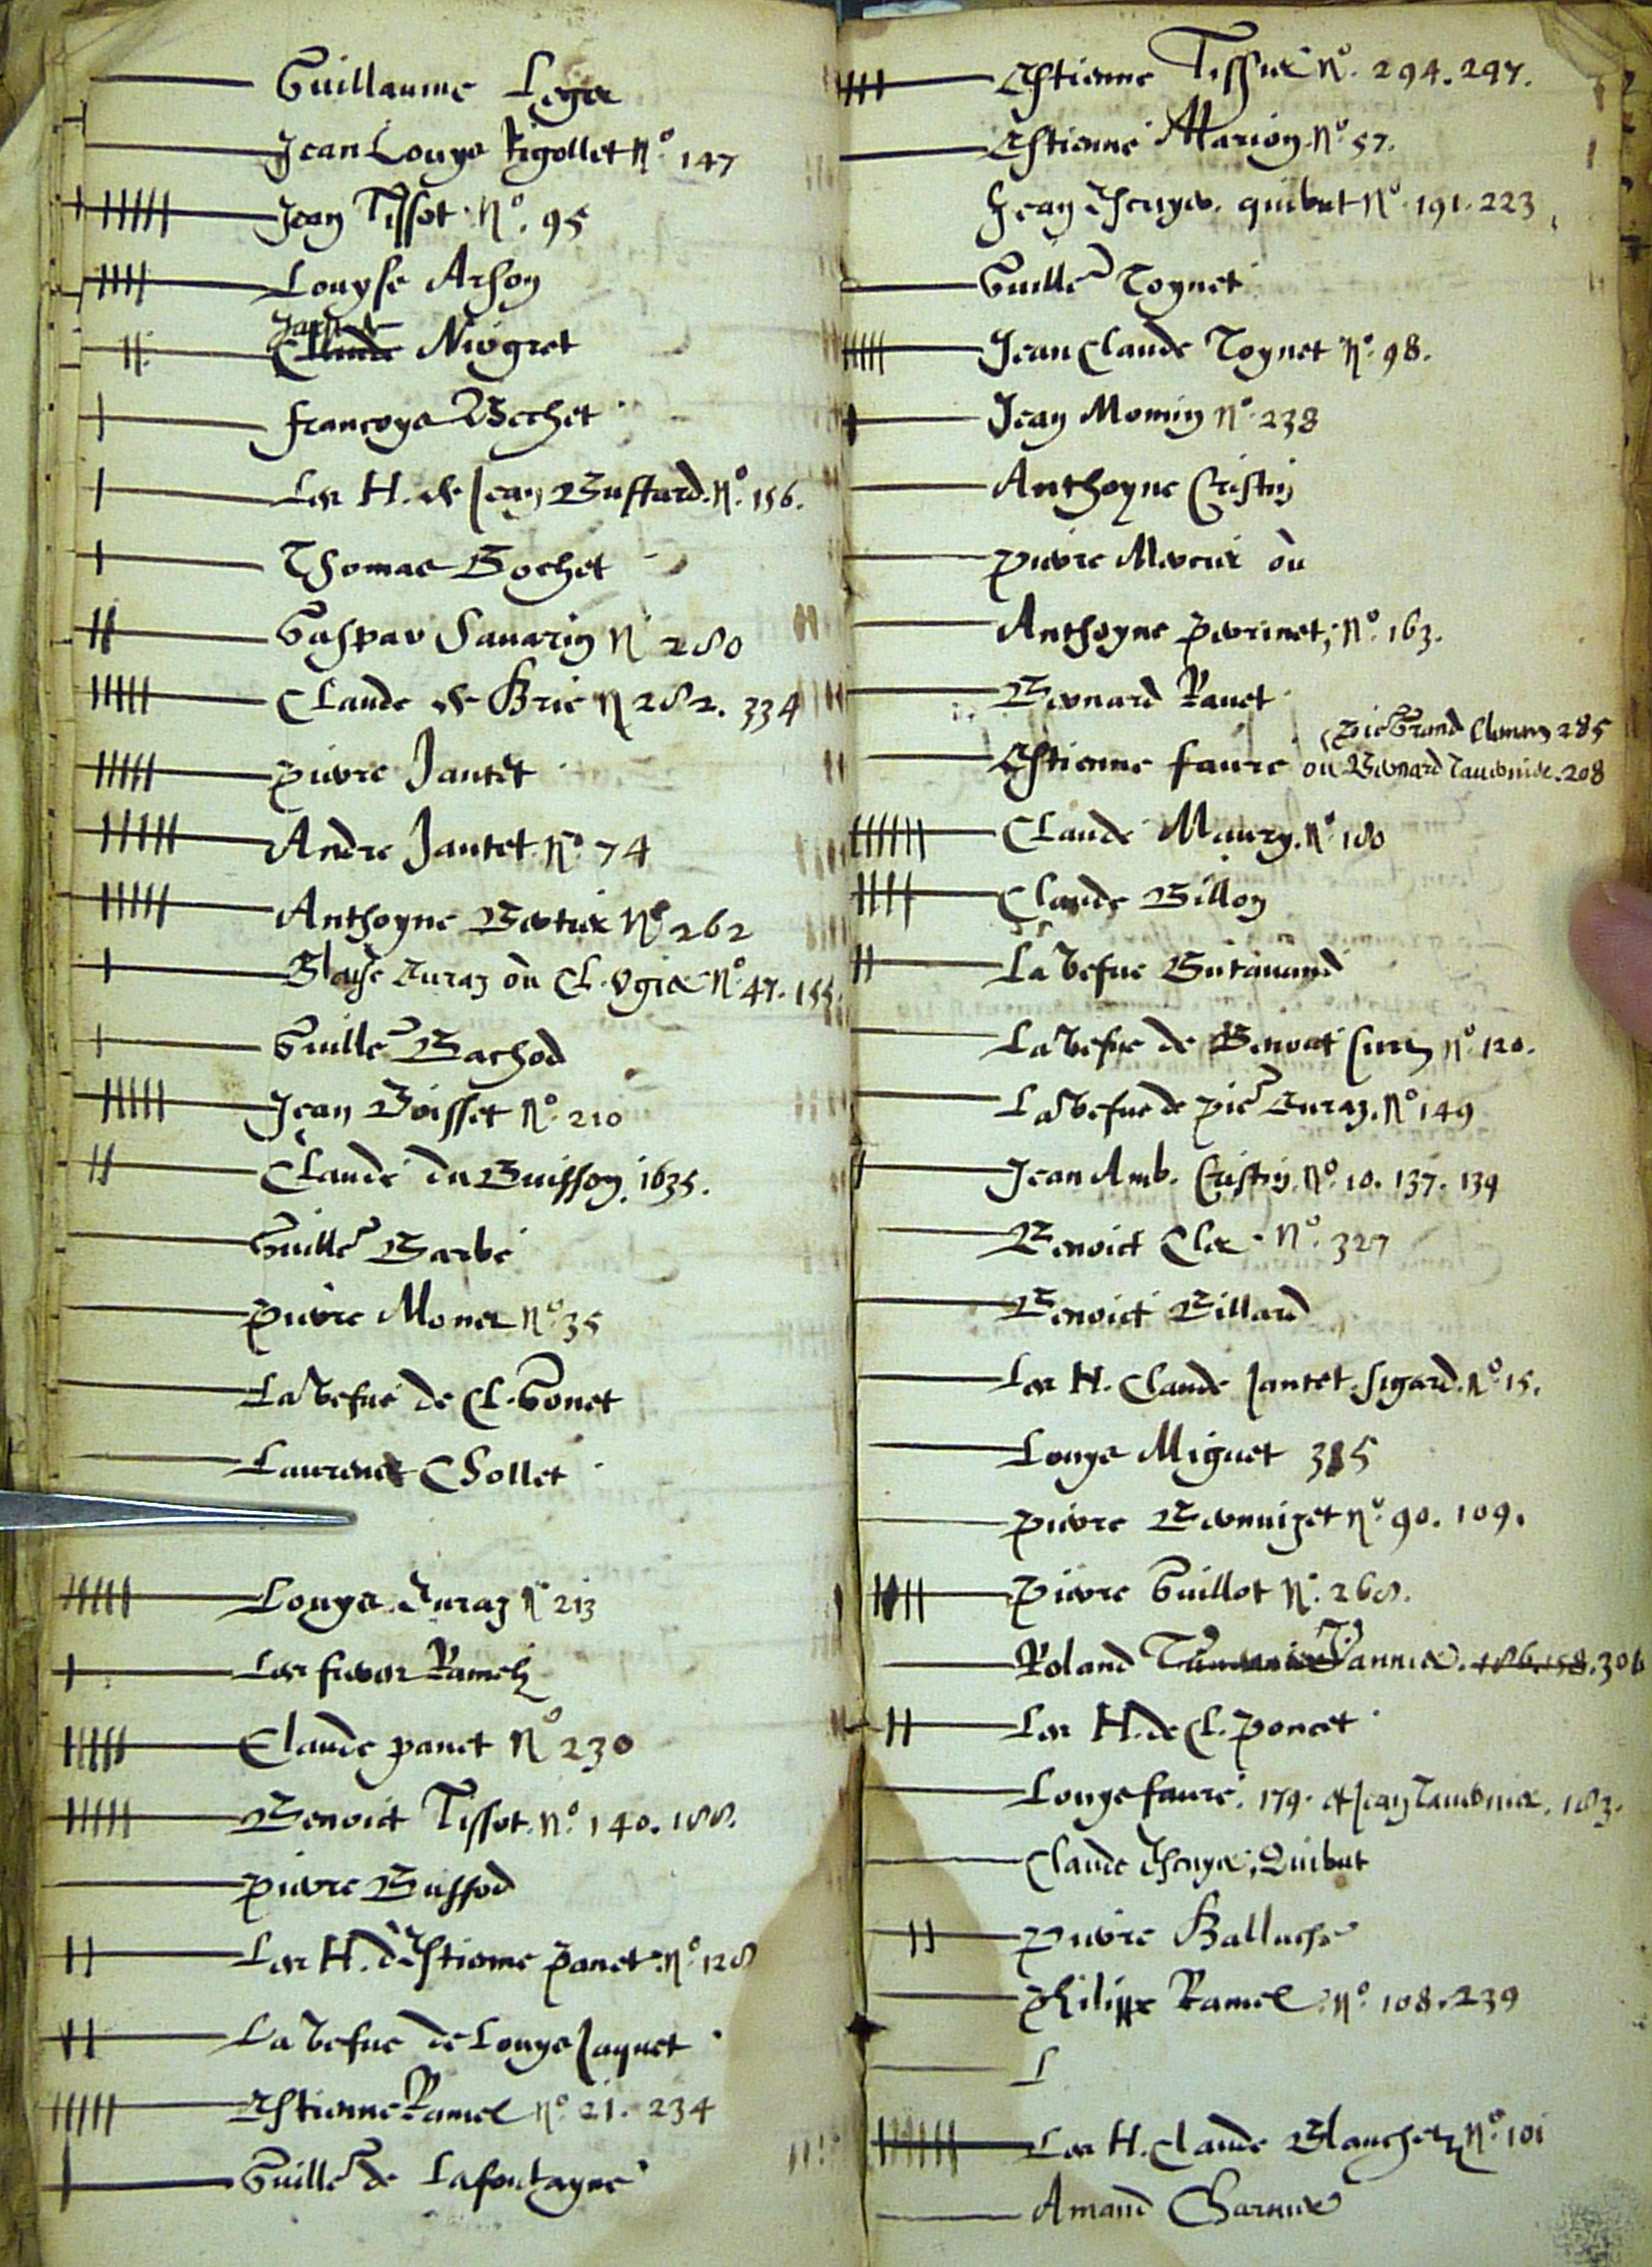 Guillaume Leger
Jean Louys Rigollet No. 147
Jean Tissot No. 95
Louyse Arson
Claude Niogret
Françoys Bechet
Les H. de Jean Buffard. No. 156.
Thomas Bochet
Gaspar Sauarin N 280
Claude de Brie N 282. 334
Pierre Jantet
Andre Jantet. No. 74
Anthoyne Bertier No 262
Blaise Curaz ou Cl. Ogier No. 47. 155.
Guille Bachod
Jean Boisset No. 210
Claude du Buisson. 1635.
Guille Barbe
Pierre Moner No. 35
La vefue de Cl. Gonet
Laurence Chollet
Louys Curaz No 213
Les freres Ramelz
Claude panet No 230
Benoict Tissot. No. 140. 188.
Pierre Bussod
Les H. d'Estienne panet. No. 128
La vefue de Louys Jaquet
Estienne Ramel No. 21. 234
Guille de Lafontayne
Estienne Tissier No. 294. 297.
Estienne Marion. No. 57.
Jean Escuyer. quibut No. 191. 223
Guille Toynet
Jean Claude Toynet No. 98.
Jean Momin No. 238
Anthoyne Cristin
Pierre Mercier ou
Anthoyne perrinet, No. 163.
Bernard Ranet
Pie Grand Clement 285
Estienne faure ou Bernard Tauernier. 208
Claude Maury. No. 180
Claude Billon
La vefue Butauand
La vefue de Benoict No. 120.
La vefue de pie Curaz. No 149
Jean Amb. Cristin. No. 10. 137. 139
Benoict Cler. No. 327
Benoict Billard
Les H. Claude Jantet. sigard. No. 15.
Louys Miguet 315
Pierre No. 90. 109.
Pierre Guillot No. 268.
Roland Vannier. 186. 158. 306
Les H. de Cl. poncet
Louys faure. 179. et Jean Tauernier. 183.
Claude Escuyer, Quibut
Pierre Balluche
Philippe Ramel. No. 108. 239
L
Les H. Claude Blanchetz No. 101
Amand Charnier